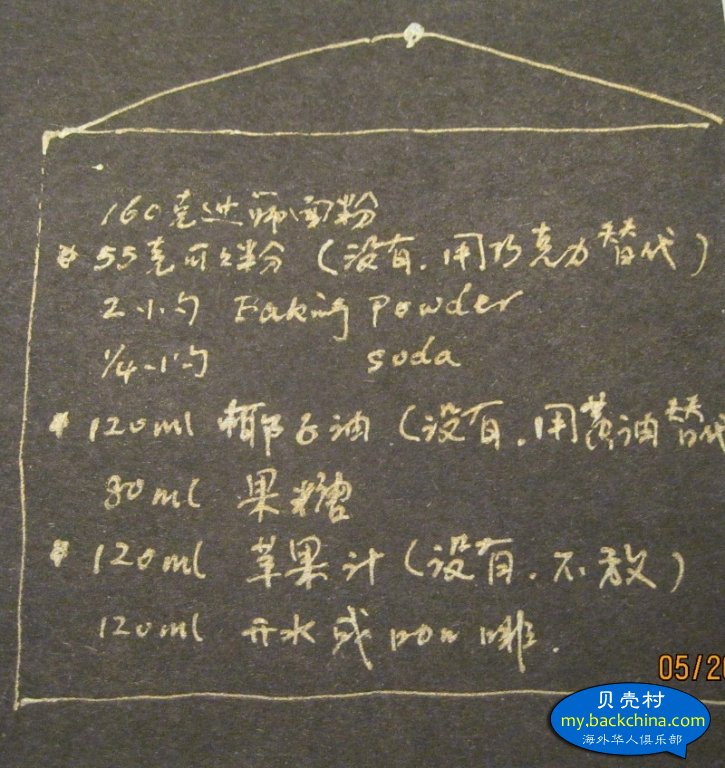 160克过筛面粉
* 55克可可粉 (没有.用巧克力替代)
2小勺 Baking Powder
1/4小勺 soda
* 120ml 椰子油 (没有.用黄油替代
80ml 果糖
* 120ml 苹果汁 (没有.不放)
120ml 开水或咖啡.
05/20
贝壳村
my.backchina.com
海外华人俱乐部